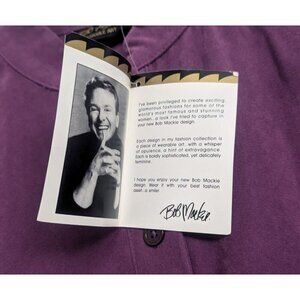 I've been privileged to create exciting,
glamorous fashions for some of the
world's most famous and stunning
women... a look I've tried to capture in
your new Bob Mackie design.
Each design in my fashion collection is
a piece of wearable art, with a whisper
of opulence, a hint of extravagance.
Each is boldly sophisticated, yet delicately
feminine.
I hope you enjoy your new Bob Mackie
design. Wear it with your best fashion
asset...a smile!
Bob Mackie